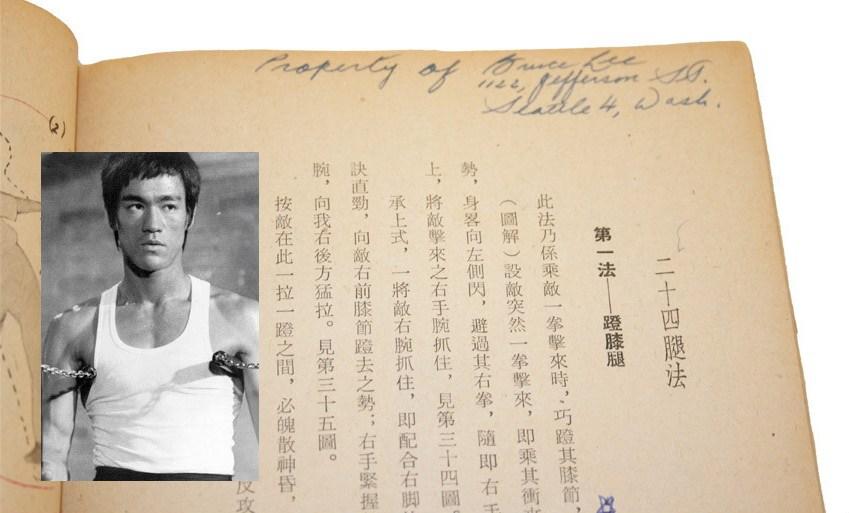 (2)
Property of Bruce Lee
1122, Jefferson St.
Seattle 4, Wash.
二十四腿法
第一法——蹬膝腿
此法乃係乘敵一拳擊來時，巧蹬其膝節，
（圖解）設敵突然一拳擊來，即乘其衝來
勢，身畧向左側閃，避過其右拳，隨即右手
上，將敵擊來之右手腕抓住，見第三十四圖。
承上式，一將敵右腕抓住，即配合右脚
訣直勁，向敵右前膝節蹬去之勢；右手緊握
腕，向我右後方猛拉。見第三十五圖。
按敵在此一拉一蹬之間，必魄散神昏，
反攻